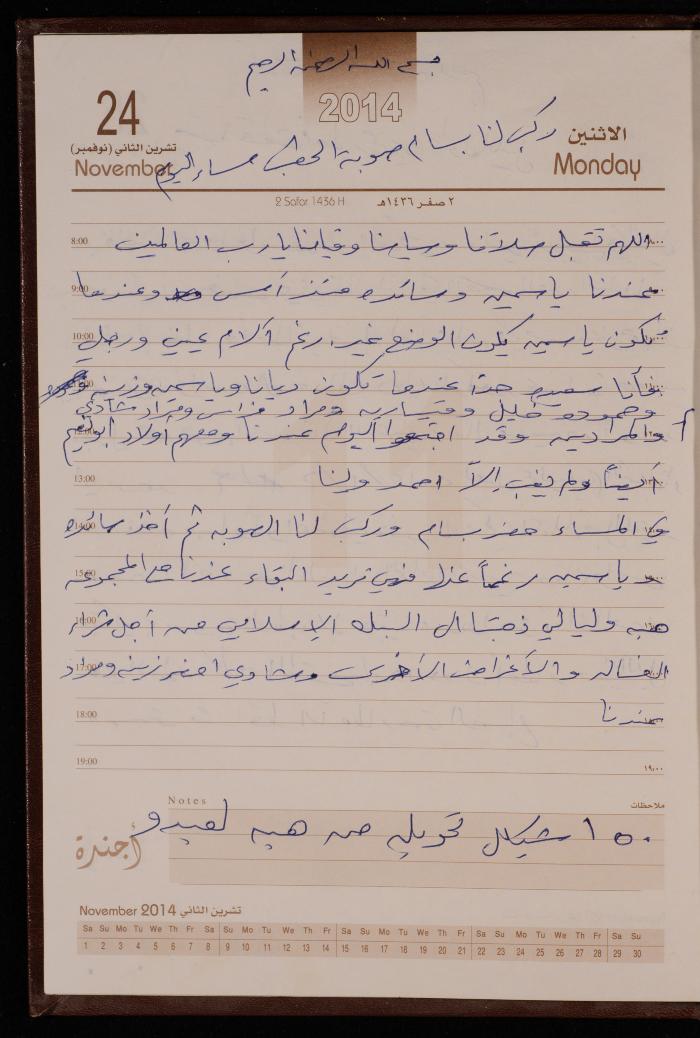 بسم الله الرحمن الرحيم
2014
24
تشرين الثاني (نوفمبر)
November
الاثنين
Monday
ركب لنا بسام صوبة الحطب مساء اليوم
2 Safar 1436 H
٢ صفر ١٤٣٦هـ
8:00 اللهم تقبل صلاتنا وصيامنا وقيامنا يارب العالمين
9:00 عندنا ياسمين وسائده منذ أمس وعندما
10:00 تكون ياسمين يكون الوضع غير. رغم آلام عيني ورجلي
فأنا سعيده جداً عندما تكون ديانا وياسمين وزينه
وحموده خليل وقيساريه ومراد فراس ومراد شادي
والمراديين وقد اجتمعوا اليوم عندنا ومعهم أولاد ابو
13:00 أيضاً ولم يغب إلا احمد ولنا
14:00 في المساء حضر بسام وركب لنا الصوبه ثم أخذ سائده
15:00 وياسمين رغماً عنها فهي تريد البقاء عندنا مع المجموعه
16:00 هبه وليالي ذهبتا الى البنك الإسلامي من أجل شراء
17:00 الغساله والأغراض الأخرى وشادي احضر زينه ومراد
18:00 عندنا
19:00 ١٩:٠٠
Notes ملاحظات
١٥٠ شيكل تحويله من هبه لعبدو
أجندة
November 2014 تشرين الثاني
Sa Su Mo Tu We Th Fr Sa Su Mo Tu We Th Fr Sa Su Mo Tu We Th Fr Sa Su Mo Tu We Th Fr Sa Su
1 2 3 4 5 6 7 8 9 10 11 12 13 14 15 16 17 18 19 20 21 22 23 24 25 26 27 28 29 30